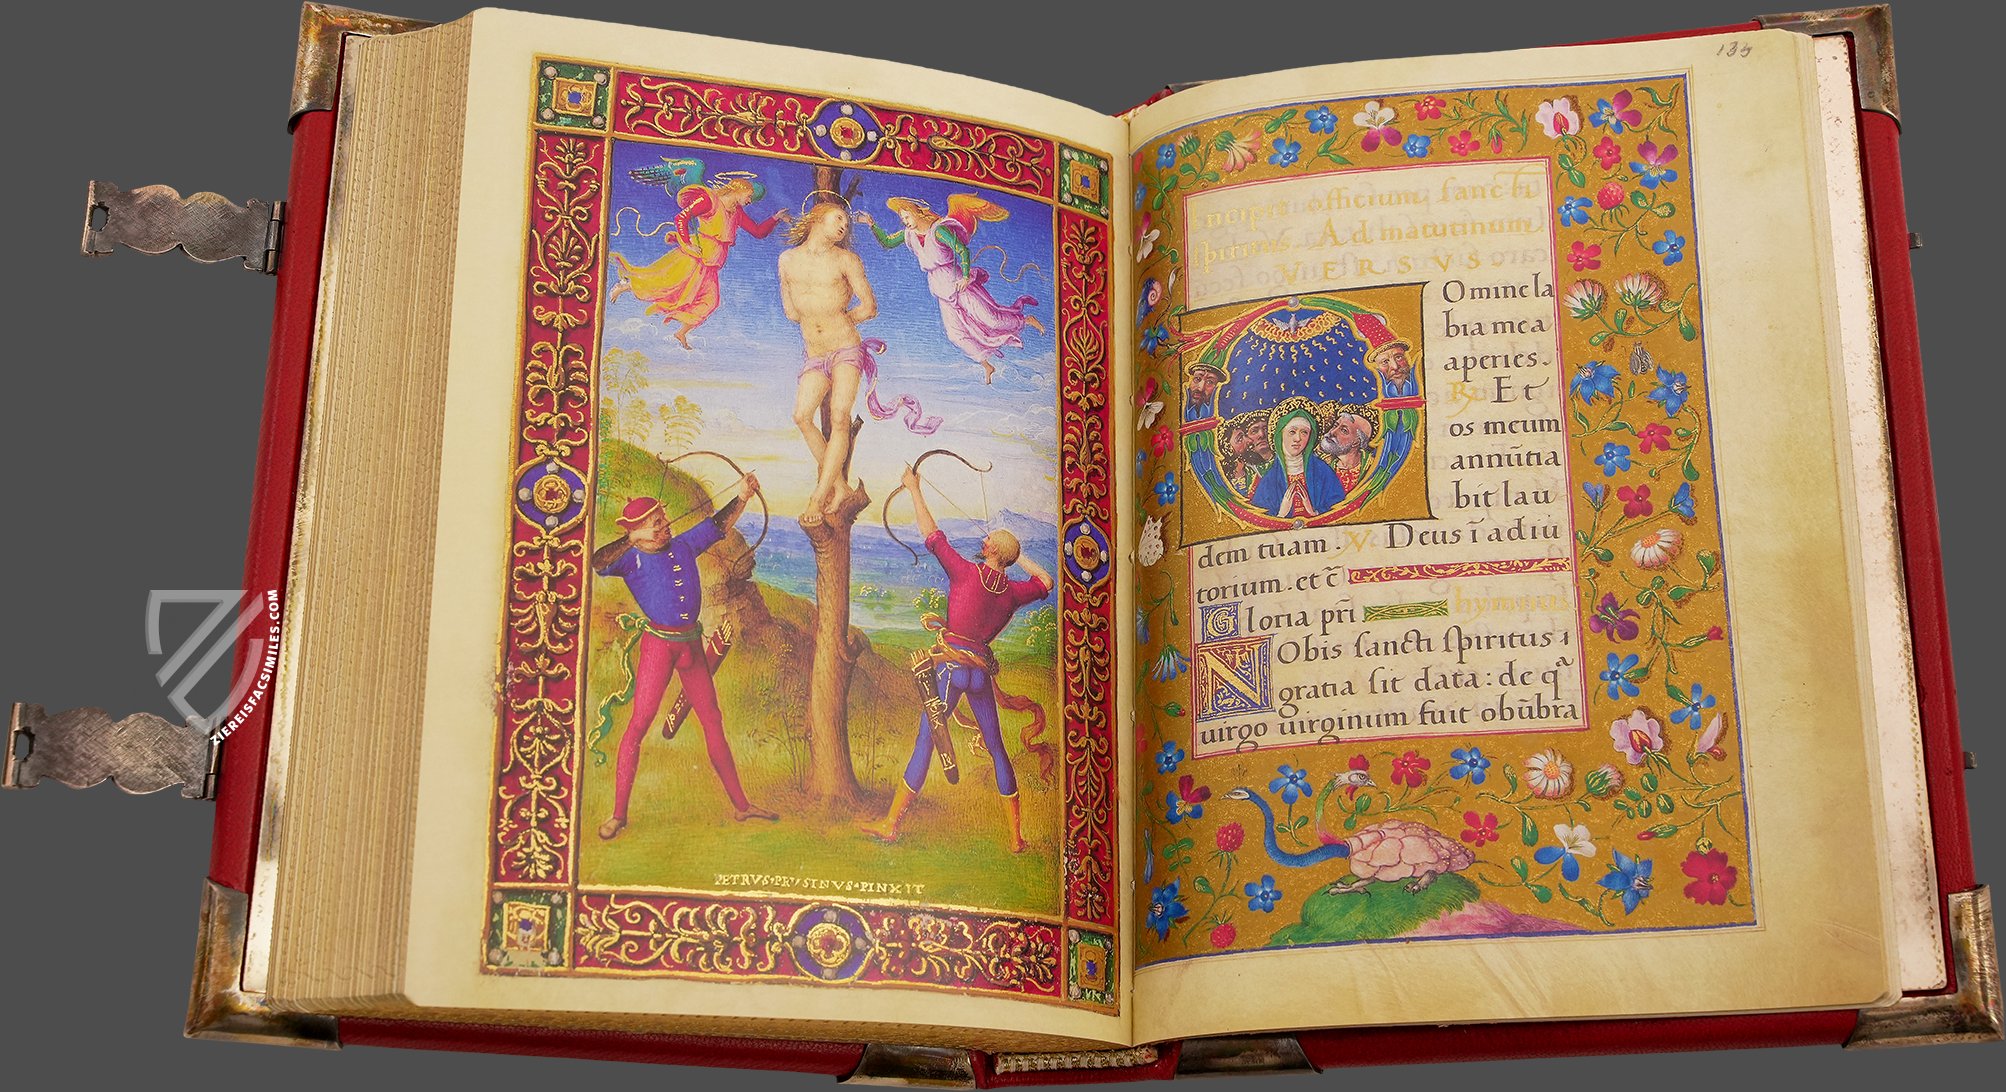 ZIEREISFACSIMILES.COM
PETRVS·PRUSINVS·PINXIT
135
Incipit officium sancti
spiritus. Ad matutinum
VERSUS.
Omine la
bia mea
aperies.
Et
os meum
annũtia
bit lau
dem tuam. V Deus ĩ adiu
torium. et c̃
Gloria pr̃i hymnus
NObis sancti spiritus
gratia sit data: de
uirgo uirginum fuit obũbra